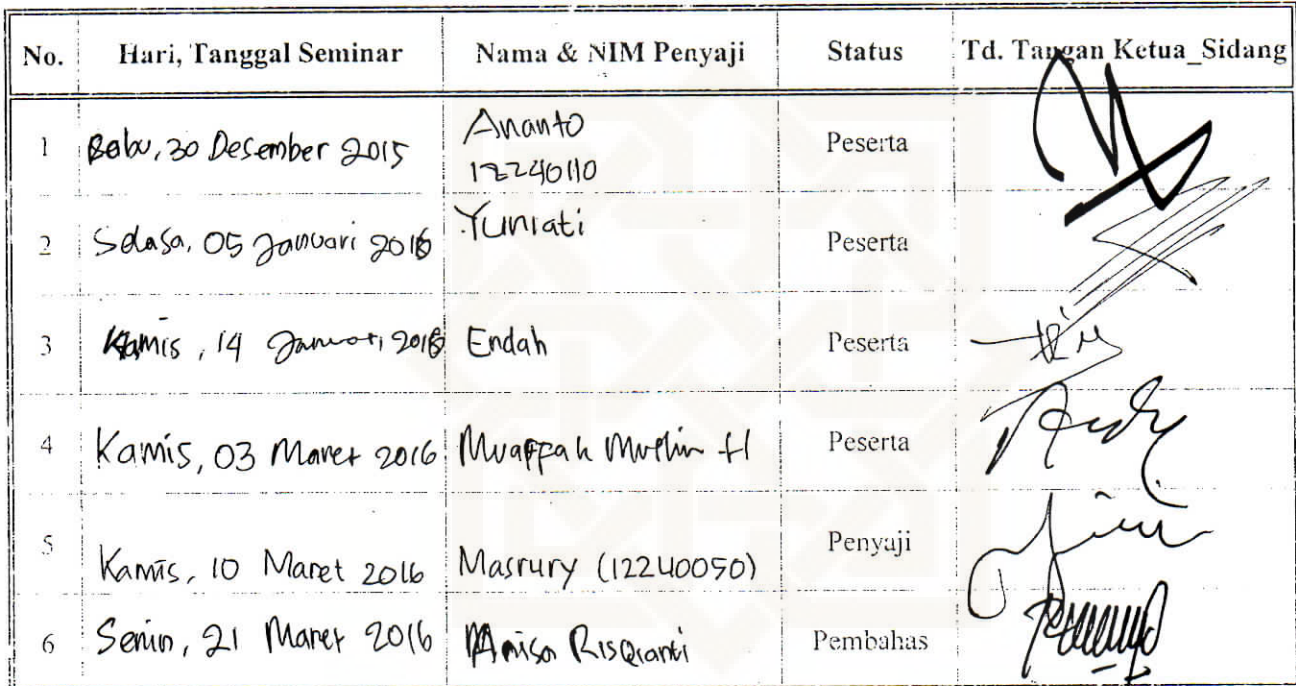 No. Hari, Tanggal Seminar Nama & NIM Penyaji Status Td. Tangan Ketua_Sidang
1 Rabu, 30 Desember 2015 Ananto Peserta
12240110
2 Selasa, 05 Januari 2016 Yuniati Peserta
3 Kamis, 14 Januari 2016 Endah Peserta
4 Kamis, 03 Maret 2016 Muaffah Peserta
5 Kamis, 10 Maret 2016 Masrury (12240050) Penyaji
6 Senin, 21 Maret 2016 Anisa Risqianti Pembahas